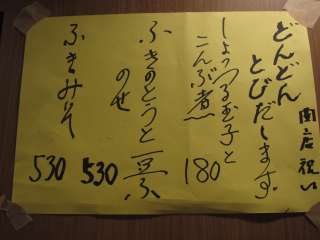 開店祝い
どんどん
とびだします
しょっつる玉子と
こんぶ煮
180
ふきのとうと豆ふ
のせ
530
ふきみそ
530